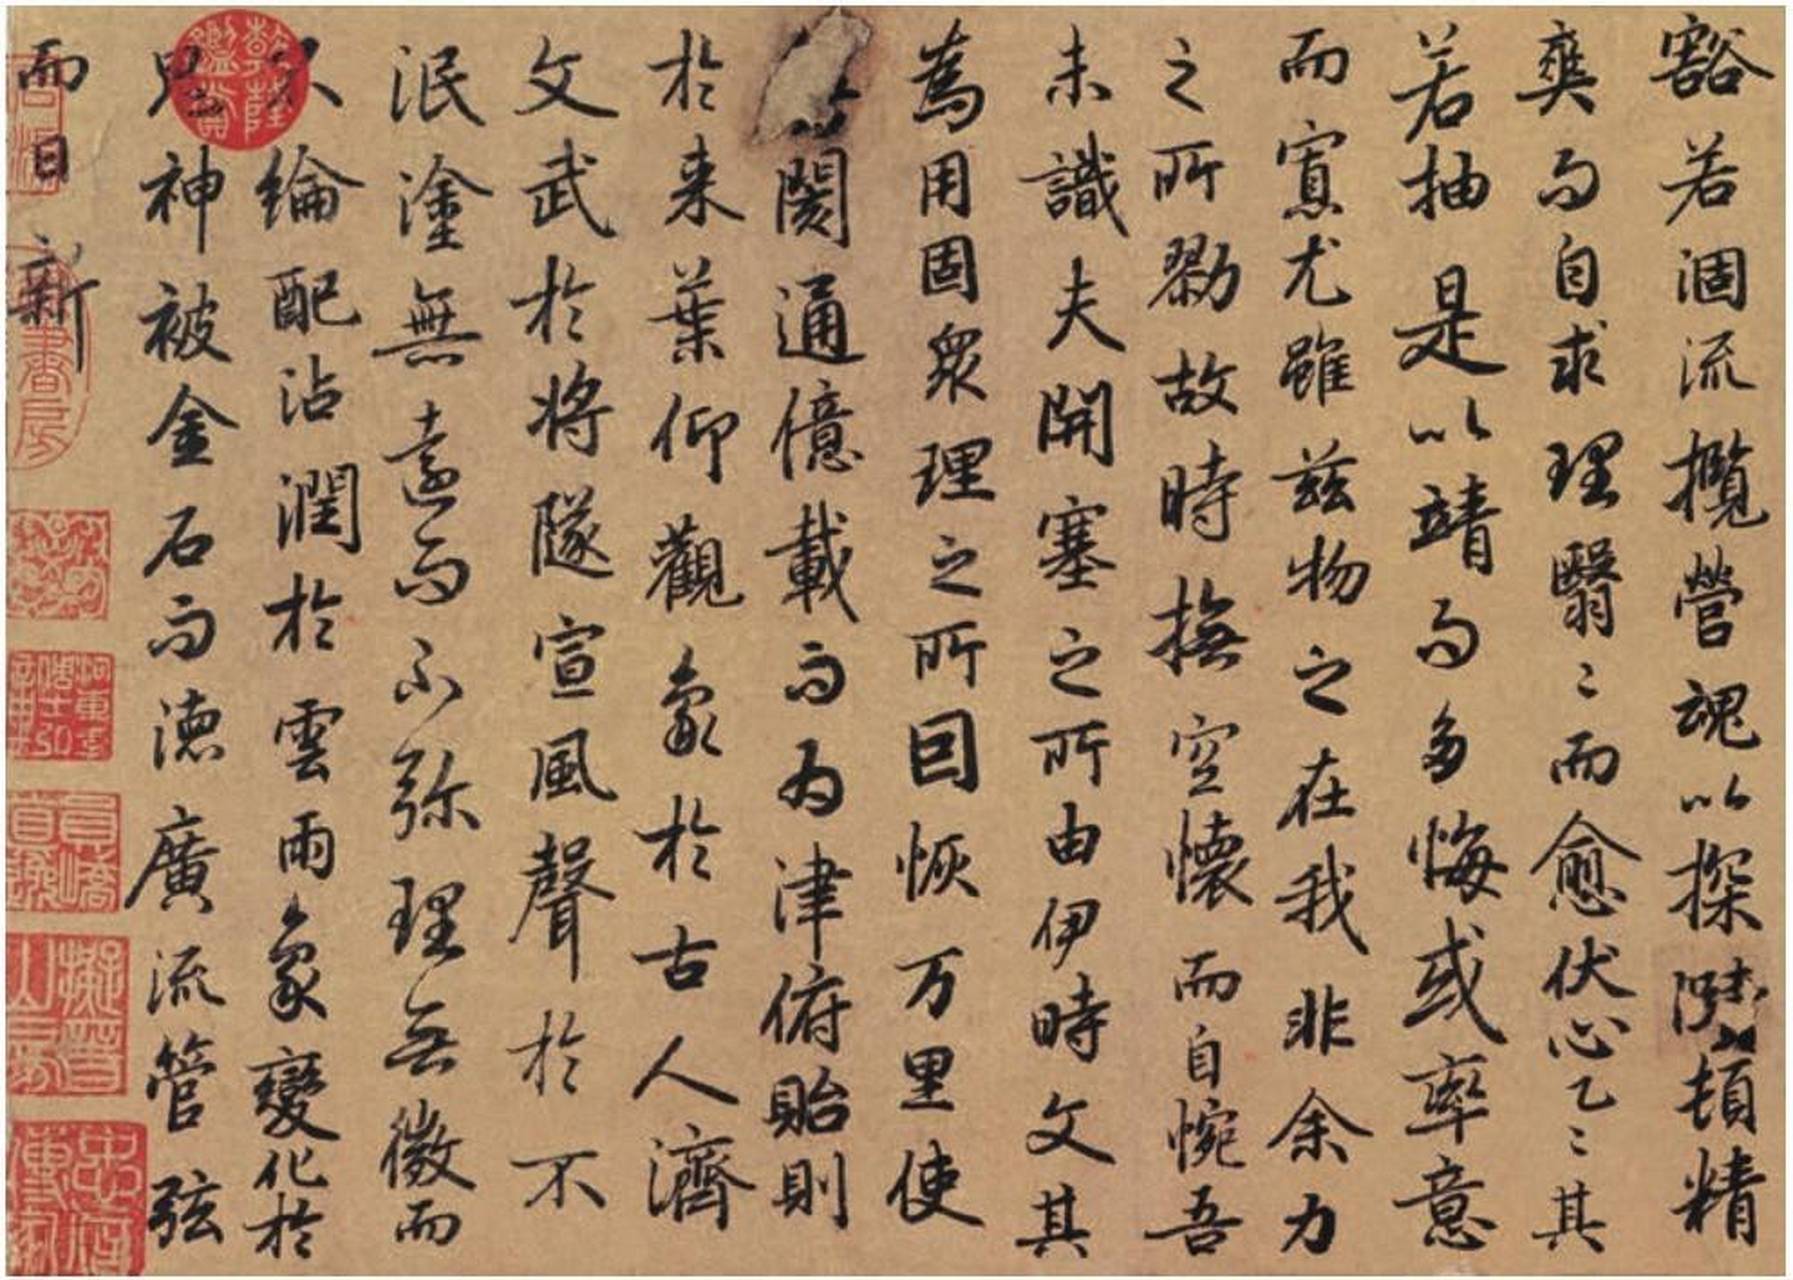 豁若涸流攬營魂以探賾頓精
爽而自求理翳〻而愈伏心乙〻其
若抽是以靖而多悔或率意
而寡尤雖茲物之在我非余力
之所勠故時撫空懷而自惋吾
未識夫開塞之所由伊時文其
為用固衆理之所因恢万里使
閡通億載而為津俯貽則
於来葉仰觀象於古人濟
文武於将隊宣風聲於不
泯塗無遠而不弥理無微而
不綸配沾潤於雲雨象變化於
鬼神被金石而德廣流管弦
而日新
乾隆鑑賞